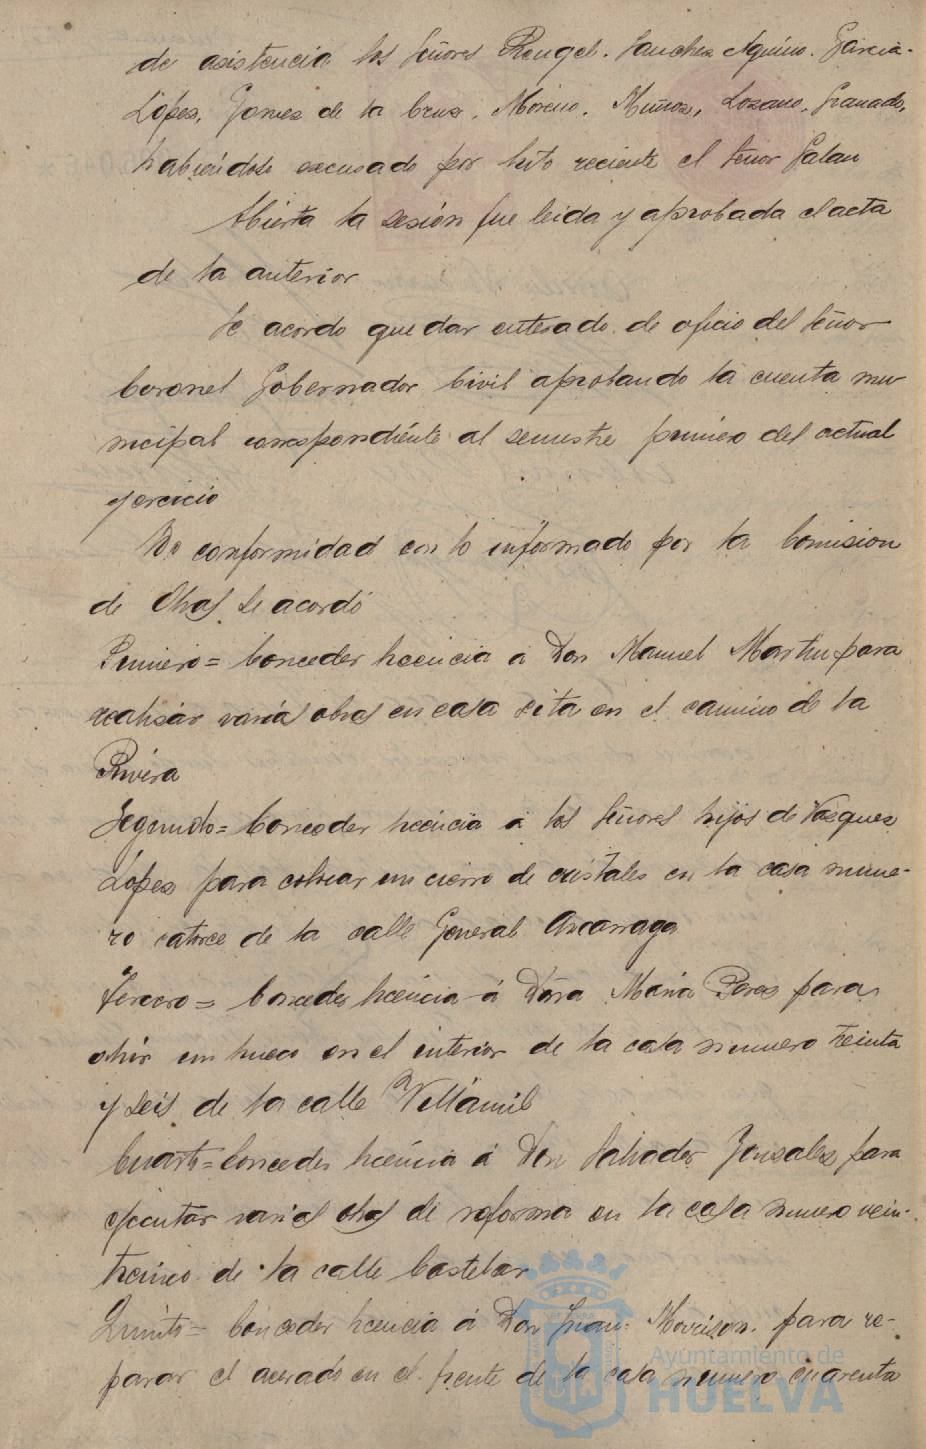 de asistencia los señores Rengel. Sanchez Aquino. Garcia-
López, Gomez de la Cruz, Moreno, Muñoz, Lozano, Granado,
habiéndose excusado por luto reciente el señor Galan
Abierta la sesión fue leida y aprobada el acta
de la anterior
Se acordo quedar enterado de oficio del señor
Coronel Gobernador Civil aprobando la cuenta mu
nicipal correspondiénte al semestre primero del actual
ejercicio
De conformidad con lo informado por la Comision
de Obras se acordó
Primero = Conceder licencia á Don Manuel Martin para
realizar varias obras en casa sita en el camino de la
Rivera
Segundo = Conceder licencia á los señores hijos de Vázquez
López para colocar un cierro de cristales en la casa nume-
ro catorce de la calle General Azcarraga
Tercero = Conceder licencia á Doña Maria Perez para
abrir un hueco en el interior de la casa numero treinta
y seis de la calle Villamil
Cuarto = Conceder licencia á Don Salvador Gonzalez para
ejecutar varias obras de reforma en la casa numero vein-
ticinco de la calle Castelar
Quinto = Conceder licencia á Don Juan Morrison para re-
parar el acerado en el frente de la casa numero cuarenta
Ayuntamiento de
HUELVA